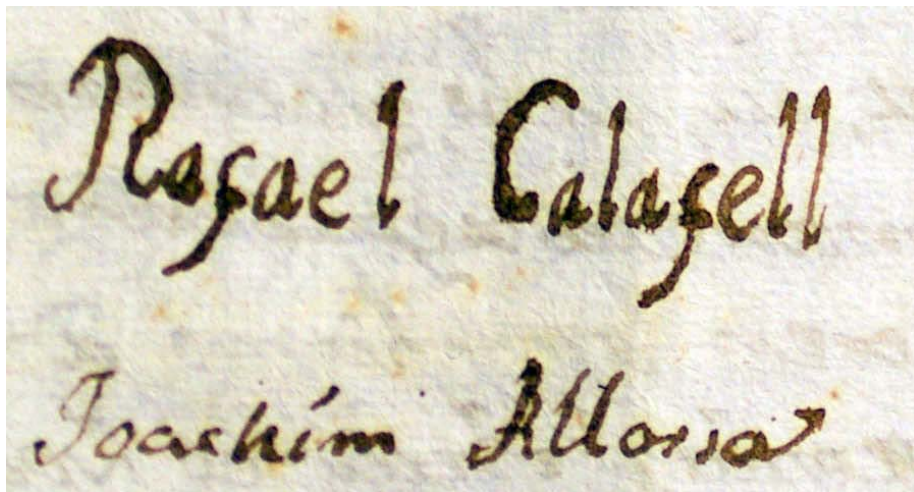 Rafael Calafell
Joachim Allorsa